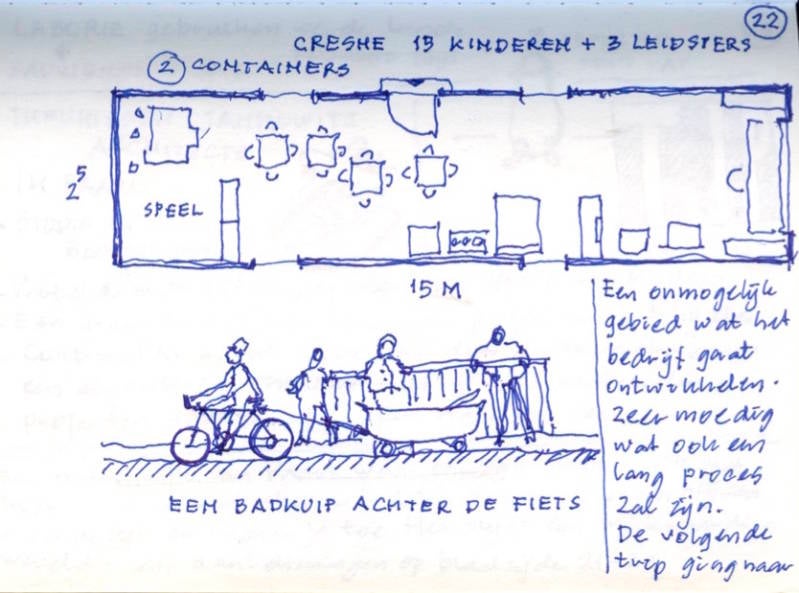 22
CRESHE 15 KINDEREN + 3 LEIDSTERS
2 CONTAINERS
2⁵
SPEEL
15 M
EEN BADKUIP ACHTER DE FIETS
Een onmogelijk
gebied wat het
bedrijf gaat
ontwikkelen.
Zeer moedig
wat ook een
lang proces
zal zijn.
De volgende
trip ging naar